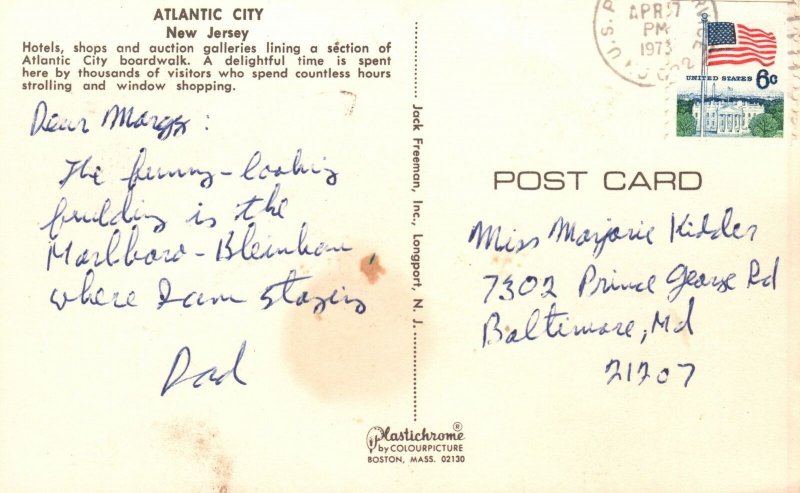 ATLANTIC CITY
New Jersey
Hotels, shops and auction galleries lining a section of
Atlantic City boardwalk. A delightful time is spent
here by thousands of visitors who spend countless hours
strolling and window shopping.
Dear Margy:
The funny-looking
building is the
Marlboro-Bleinham,
where I am staying
Dad
Jack Freeman, Inc., Longport, N. J.
Plastichrome®
by COLOURPICTURE
BOSTON, MASS. 02130
U.S. P
APR 7
PM
1973
UNITED STATES 6c
POST CARD
Miss Marjorie Kidder
7302 Prince George Rd
Baltimore, Md
21207